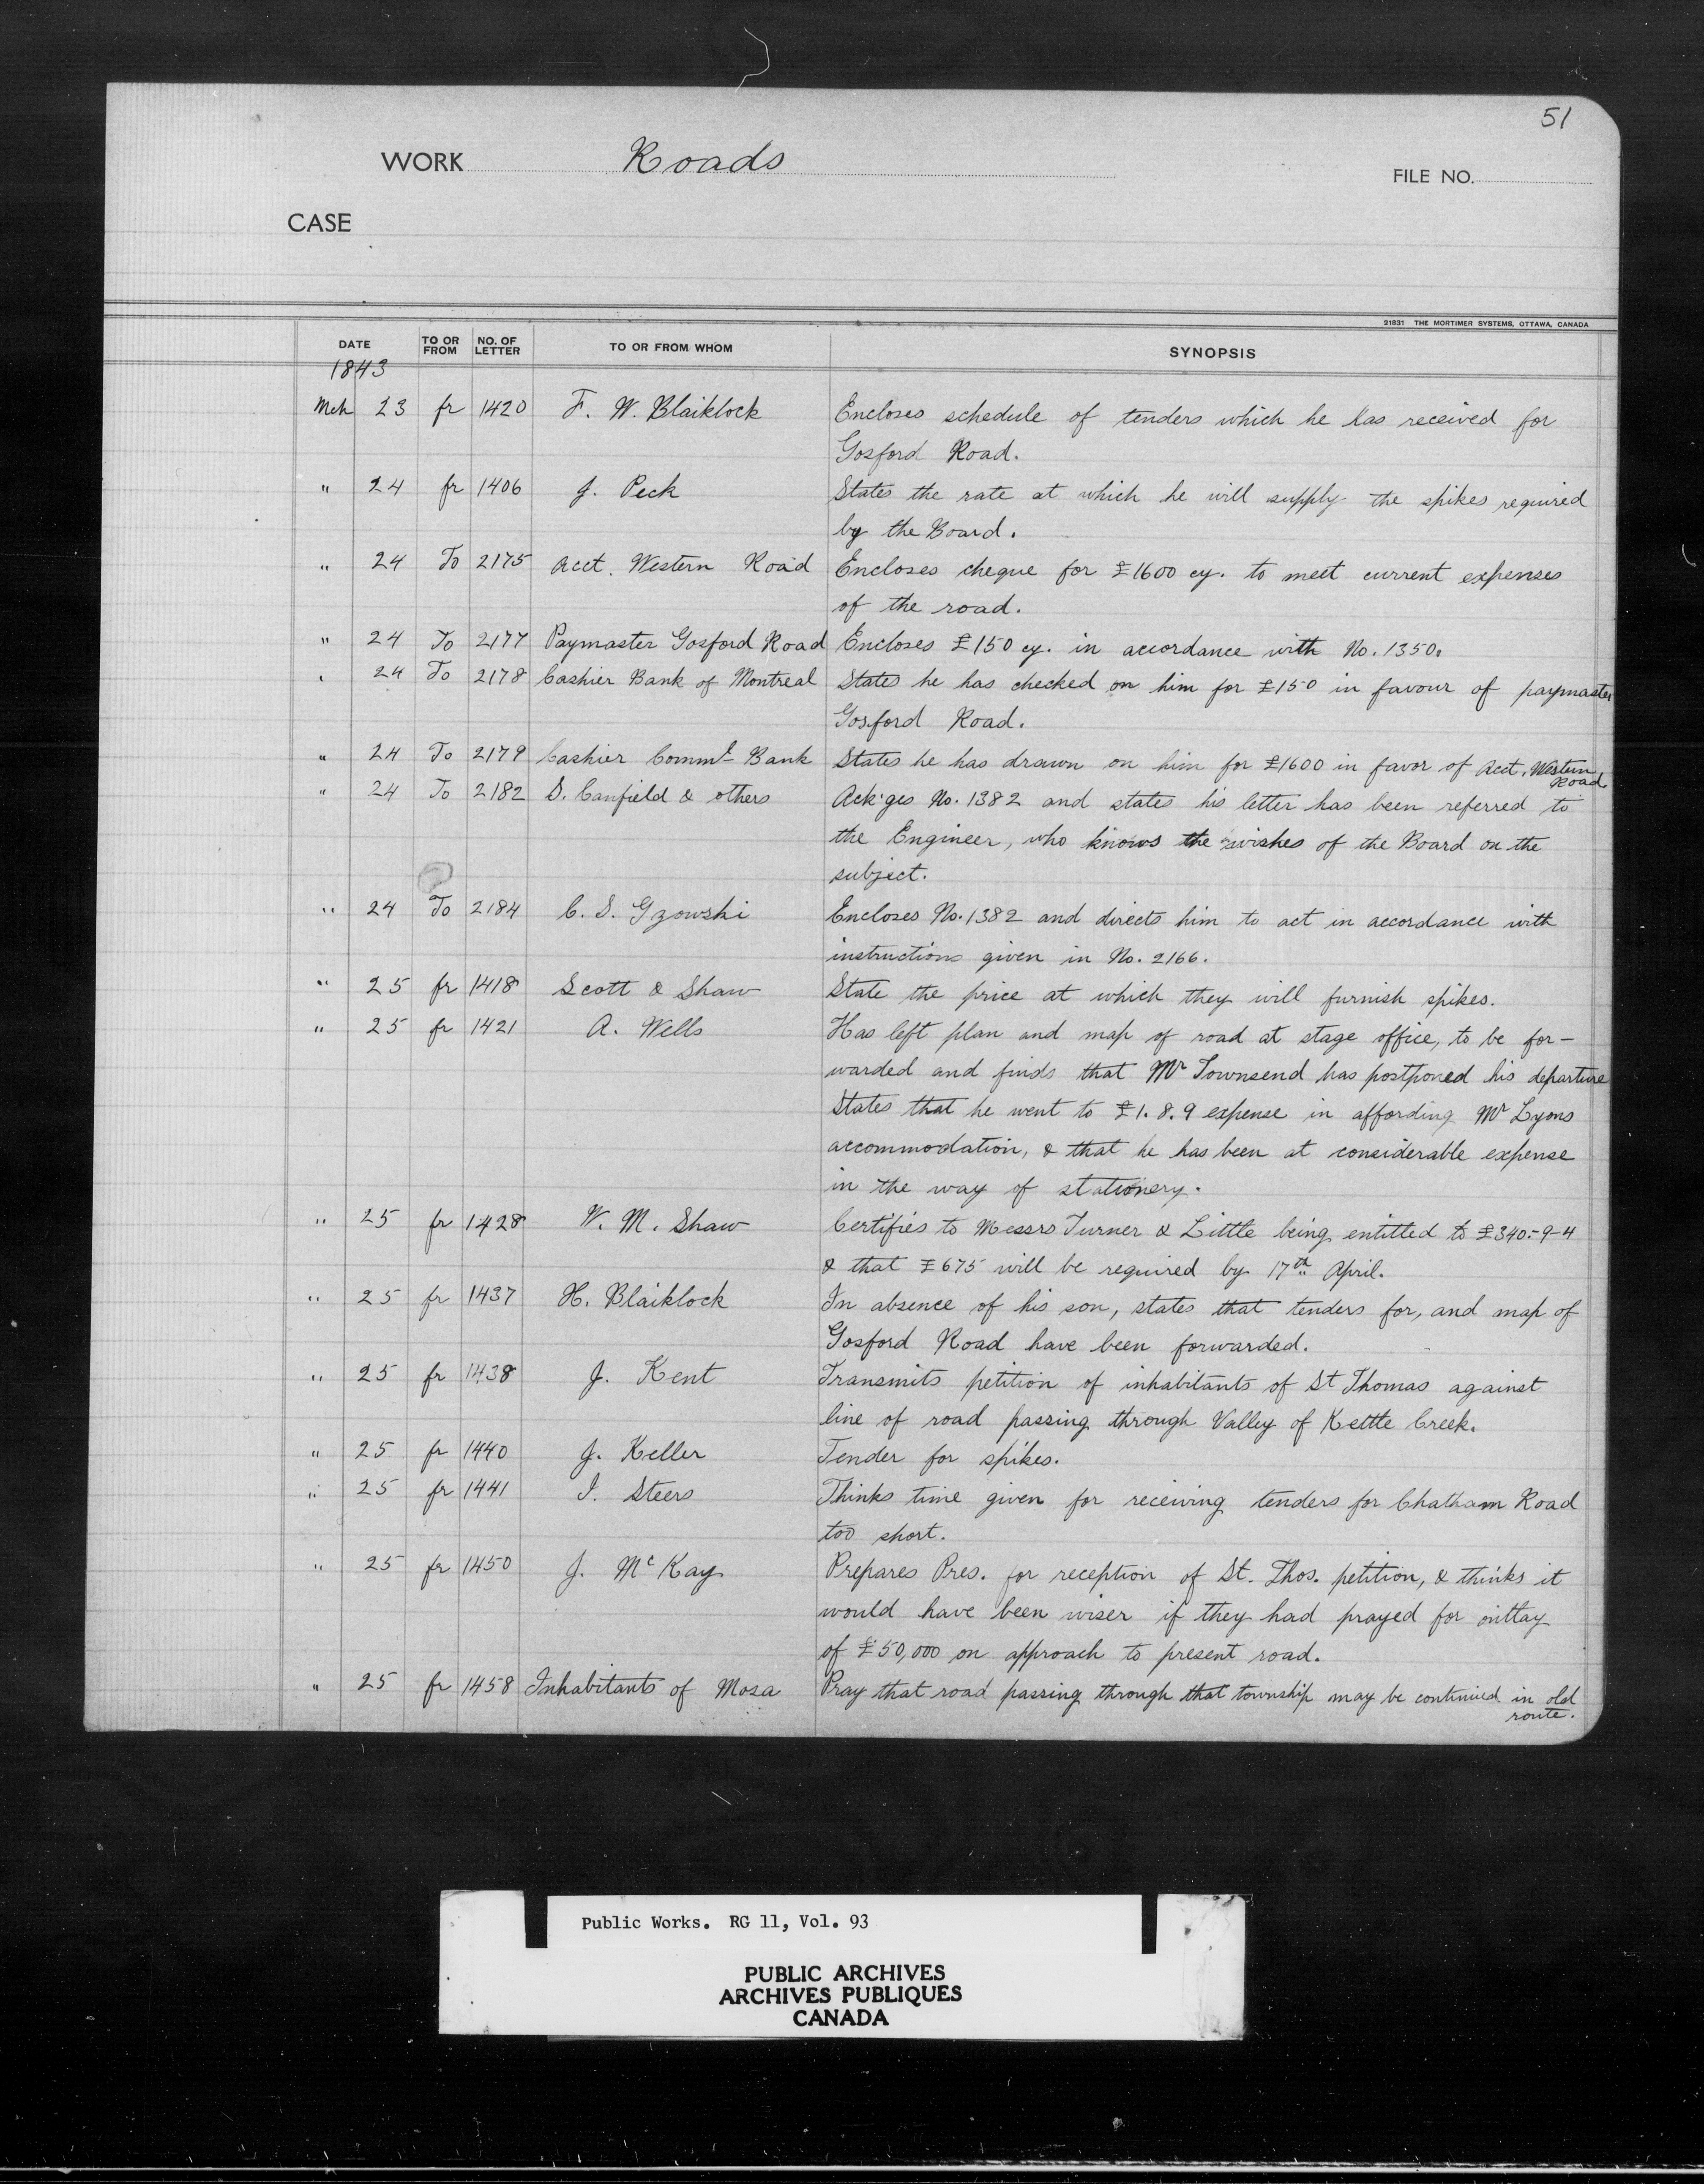 51
WORK Roads
FILE NO.
CASE
21831 THE MORTIMER SYSTEMS, OTTAWA, CANADA
DATE TO OR FROM NO. OF LETTER TO OR FROM WHOM SYNOPSIS
1843
Mch 23 fr 1420 F. W. Blaiklock Encloses schedule of tenders which he has received for
Gosford Road.
" 24 fr 1406 J. Peck States the rate at which he will supply the spikes required
by the Board.
" 24 To 2175 Acct. Western Road Encloses cheque for £1600 cy. to meet current expenses
of the road.
" 24 To 2177 Paymaster Gosford Road Encloses £150 cy. in accordance with No. 1350.
" 24 To 2178 Cashier Bank of Montreal States he has checked on him for £150 in favour of paymaster
Gosford Road.
" 24 To 2179 Cashier Comml Bank States he has drawn on him for £1600 in favor of Acct. Western
Road
" 24 To 2182 D. Canfield & others Ack'ges No. 1382 and states his letter has been referred to
the Engineer, who knows the wishes of the Board on the
subject.
" 24 To 2184 C. S. Gzowski Encloses No. 1382 and directs him to act in accordance with
instructions given in No. 2166.
" 25 fr 1418 Scott & Shaw State the price at which they will furnish spikes.
" 25 fr 1421 A. Wells Has left plan and map of road at stage office, to be for-
warded and finds that Mr Townsend has postponed his departure
States that he went to £1. 8. 9 expense in affording Mr Lyons
accommodation, & that he has been at considerable expense
in the way of stationery.
" 25 fr 1428 W. M. Shaw Certifies to Messrs Turner & Little being entitled to £340-9-4
& that £675 will be required by 17th April.
" 25 fr 1437 H. Blaiklock In absence of his son, states that tenders for, and map of
Gosford Road have been forwarded.
" 25 fr 1438 J. Kent Transmits petition of inhabitants of St Thomas against
line of road passing through Valley of Kettle Creek.
" 25 fr 1440 J. Keller Tender for spikes.
" 25 fr 1441 I. Steers Thinks time given for receiving tenders for Chatham Road
too short.
" 25 fr 1450 J. McKay Prepares Pres. for reception of St. Thos. petition, & thinks it
would have been wiser if they had prayed for outlay
of £50,000 on approach to present road.
" 25 fr 1458 Inhabitants of Mosa Pray that road passing through that township may be continued in old
route.
Public Works. RG 11, Vol. 93
PUBLIC ARCHIVES
ARCHIVES PUBLIQUES
CANADA